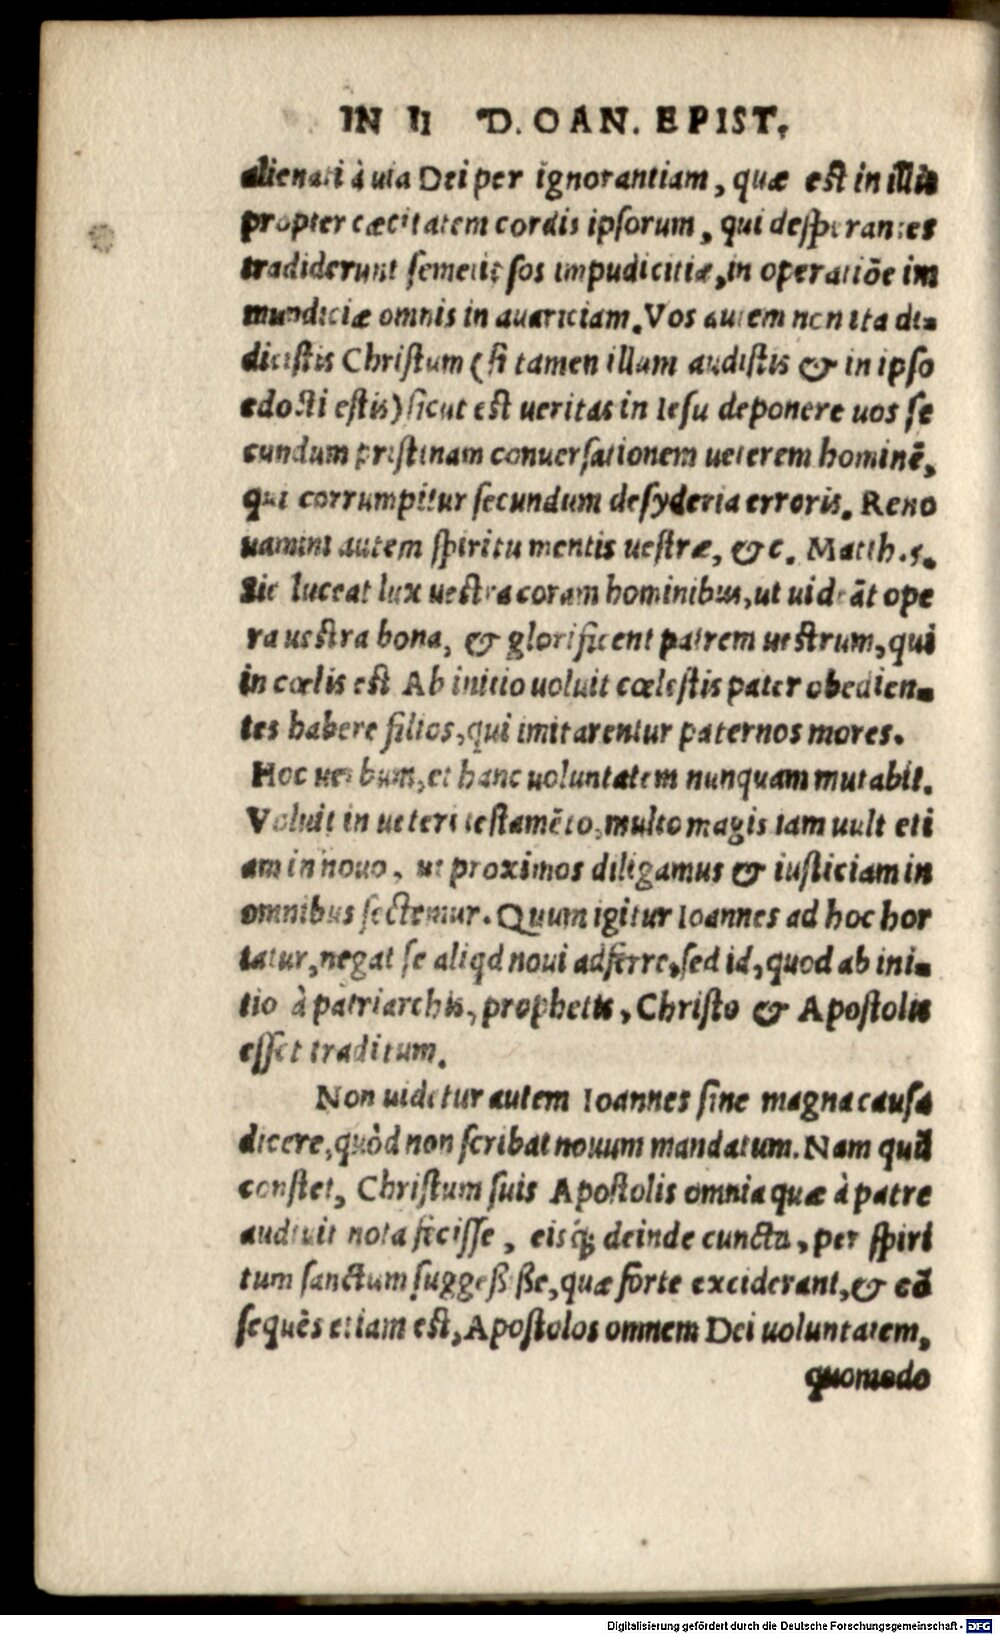 IN II D. OAN. EPIST.
alienati à uia Dei per ignorantiam, quæ est in illis
propter cæcitatem cordis ipsorum, qui desperantes
tradiderunt semetipsos impudicitiæ, in operatiōe im
mundiciæ omnis in auariciam. Vos autem non ita di-
dicistis Christum (si tamen illum audistis & in ipso
edocti estis) sicut est ueritas in Iesu deponere uos se
cundum pristinam conuersationem ueterem hominē,
qui corrumpitur secundum desyderia erroris. Reno
uamini autem spiritu mentis uestræ, &c. Matth.5.
Sic luceat lux uestra coram hominibus, ut uideāt ope
ra uestra bona, & glorificent patrem uestrum, qui
in cœlis est Ab initio uoluit cœlestis pater obedien-
tes habere filios, qui imitarentur paternos mores.
Hoc uerbum, et hanc uoluntatem nunquam mutabit.
Voluit in ueteri testamēto, multo magis iam uult eti
am in nouo, ut proximos diligamus & iusticiam in
omnibus sectemur. Quum igitur Ioannes ad hoc hor
tatur, negat se aliqd noui adferre, sed id, quod ab ini-
tio à patriarchis, prophetis, Christo & Apostolis
esset traditum.
Non uidetur autem Ioannes sine magna causa
dicere, quòd non scribat nouum mandatum. Nam quū
constet, Christum suis Apostolis omnia quæ à patre
audiuit nota fecisse, eisq́; deinde cuncta, per spiri
tum sanctum suggeßißse, quæ forte exciderant, & cō
sequēs etiam est, Apostolos omnem Dei uoluntatem,
quomodo
Digitalisierung gefördert durch die Deutsche Forschungsgemeinschaft - DFG